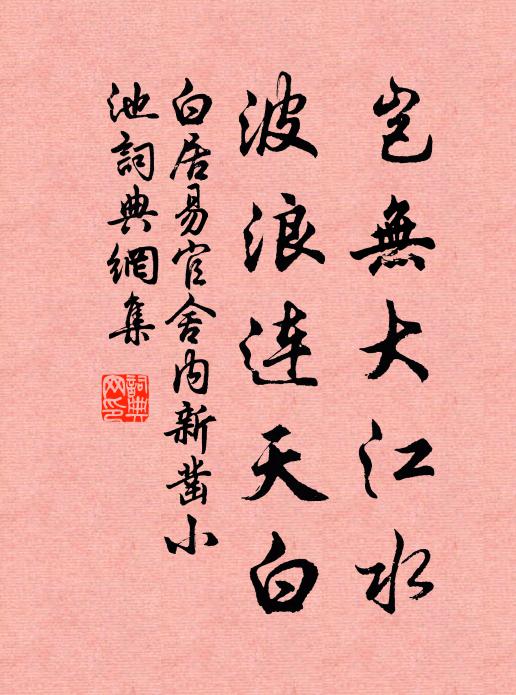 岂無大江水
波浪连天白
白居易官舍内新凿小
池詞典網集
詞典
网印